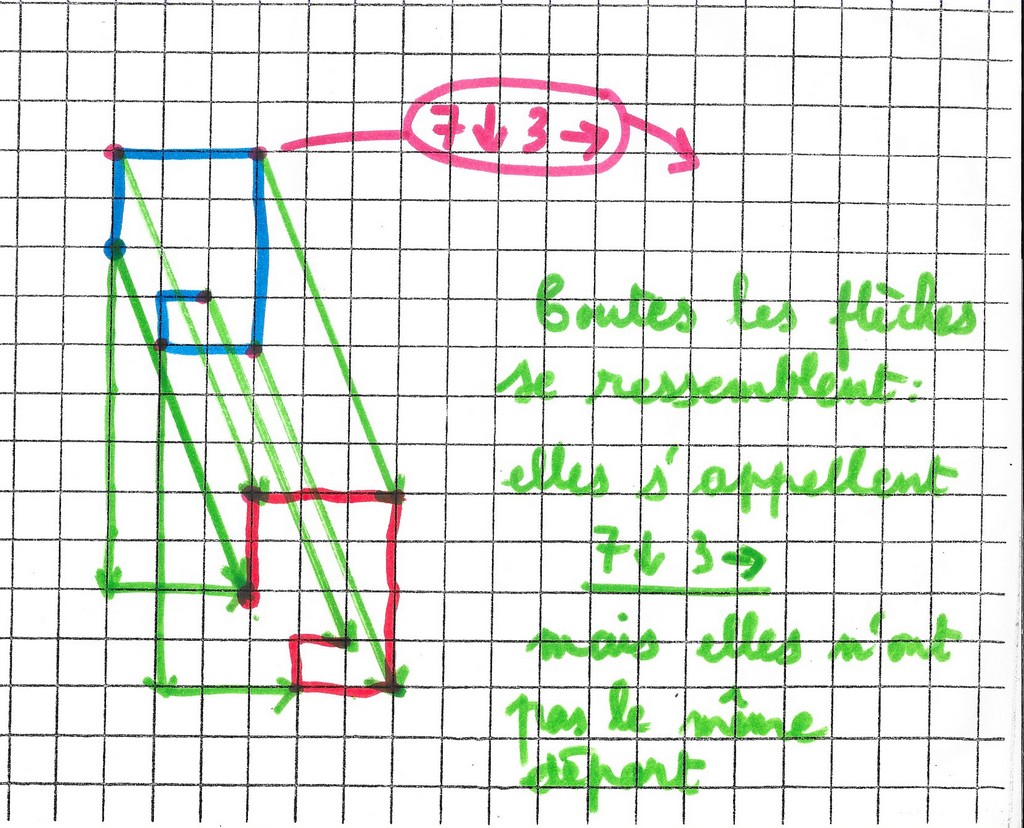 7↓ 3→
Toutes les flèches
se ressemblent:
elles s'appellent
7↓ 3→
mais elles n'ont
pas le même
départ